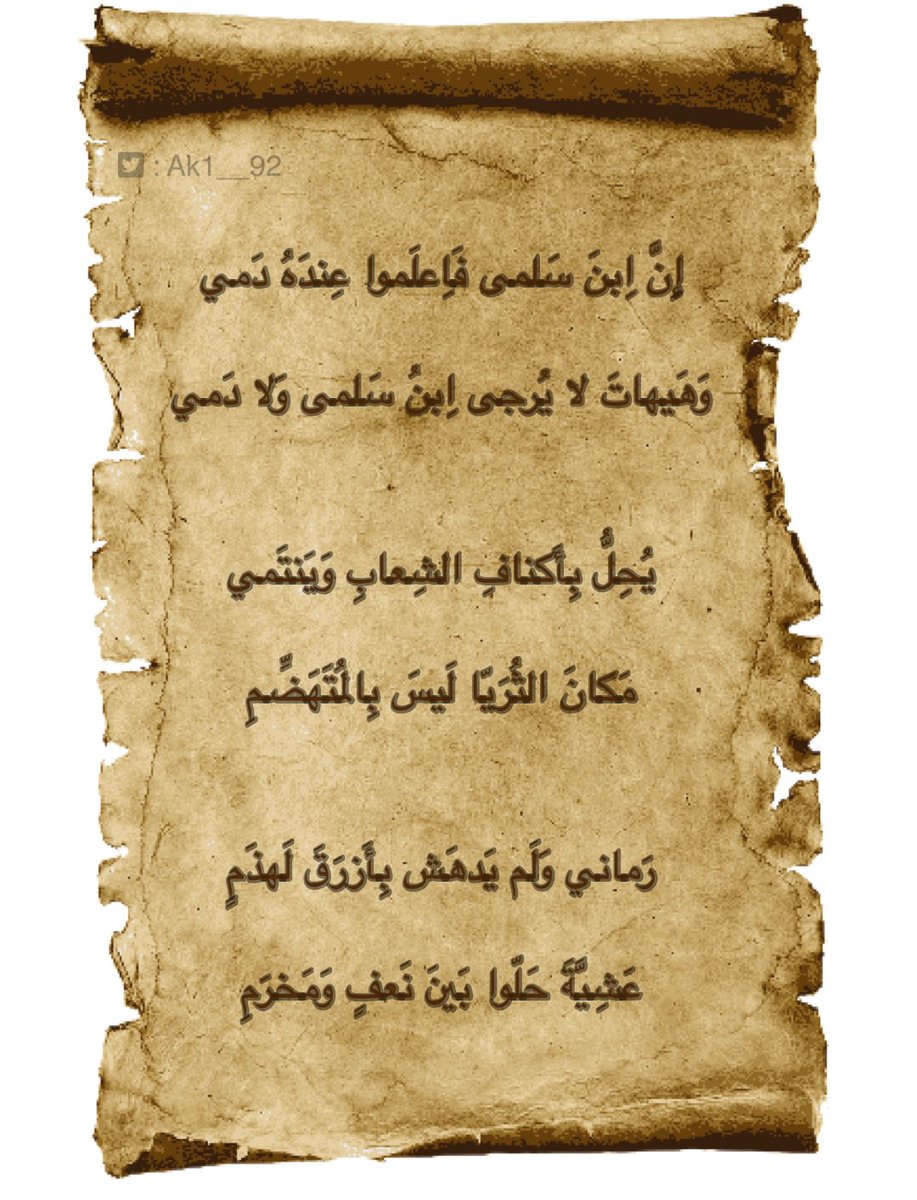 : Ak1__92
إِنَّ اِبنَ سَلمى فَاِعلَموا عِندَهُ دَمي
وَهَيهاتَ لا يُرجى اِبنُ سَلمى وَلا دَمي
يُحِلُّ بِأَكنافِ الشِعابِ وَيَنتَمي
مَكانَ الثُرَيّا لَيسَ بِالمُتَهَضِّمِ
رَماني وَلَم يَدهَش بِأَزرَقَ لَهذَمٍ
عَشِيَّةَ حَلّوا بَينَ نَعفٍ وَمَخرَمِ